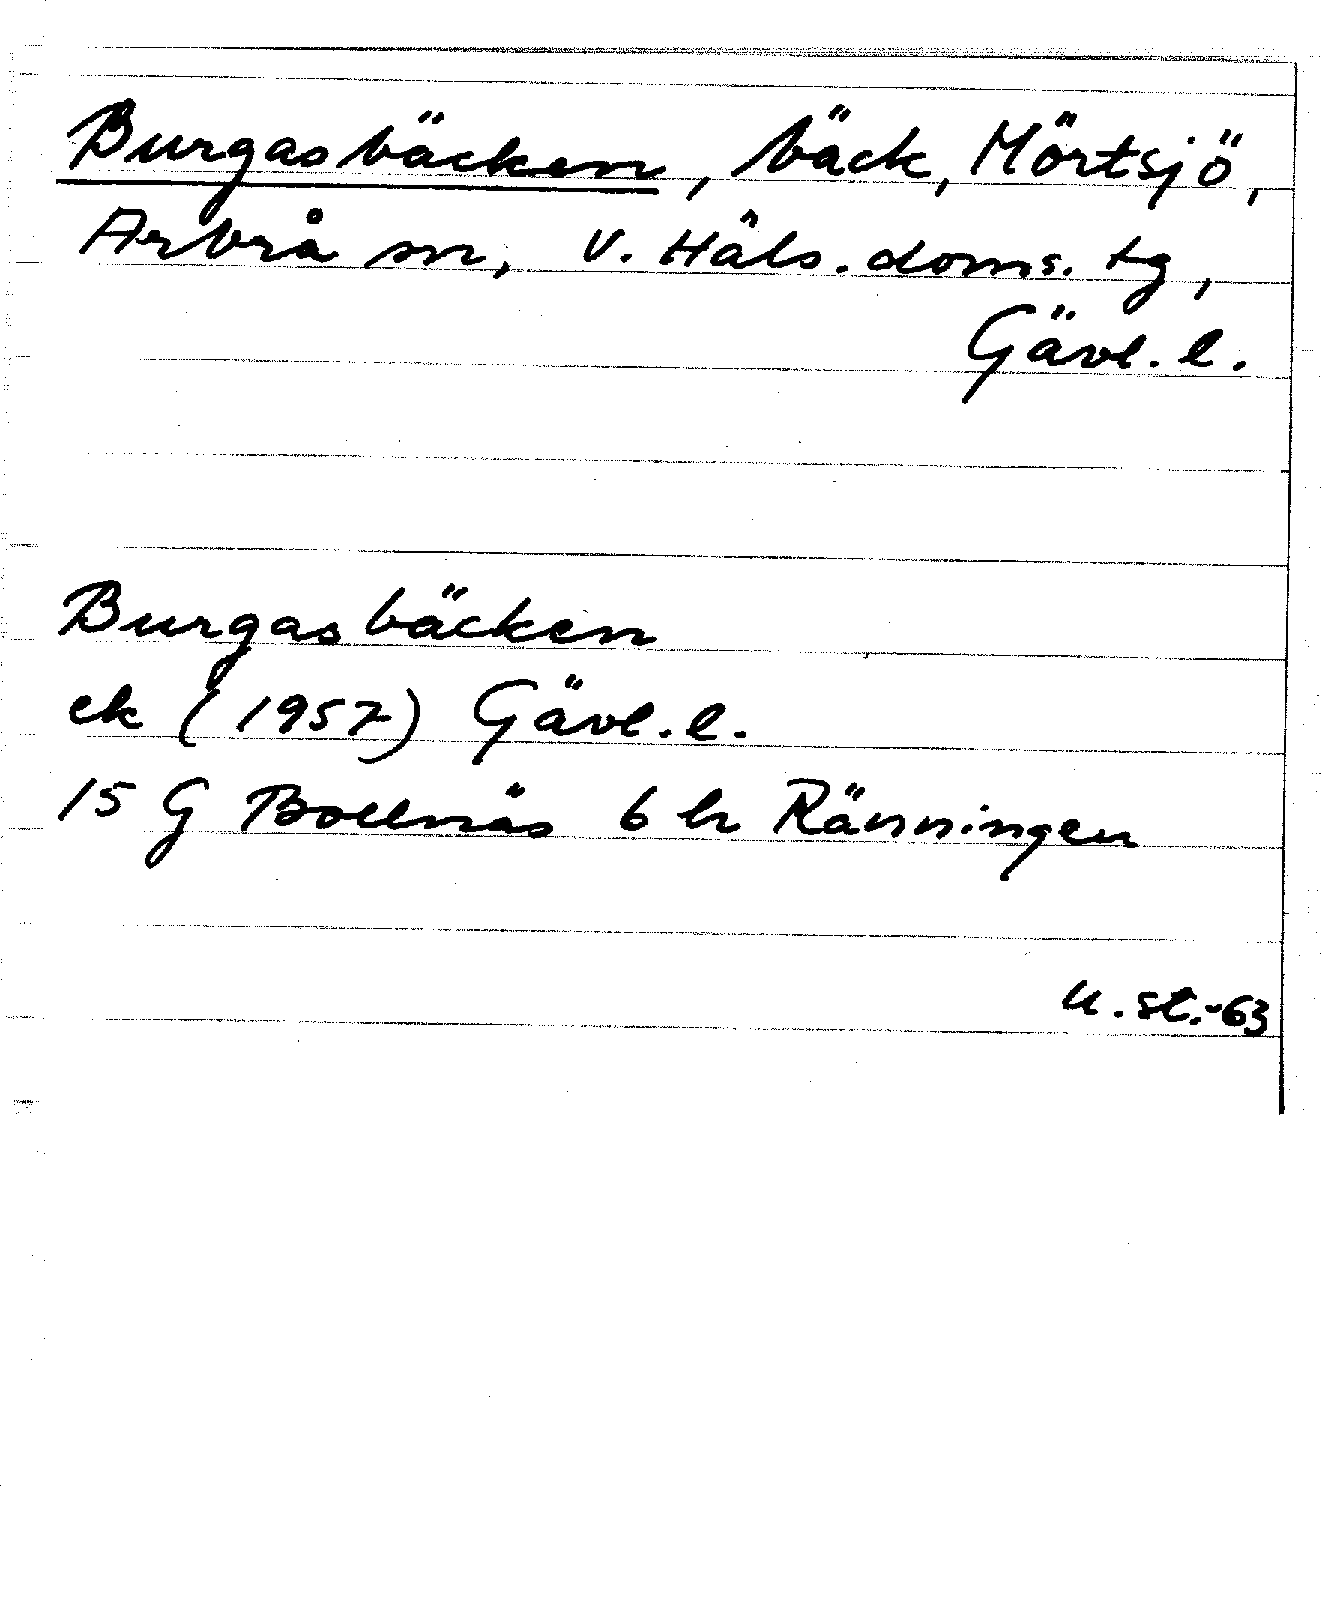 Burgasbäcken, bäck, Mörtsjö,
Arbrå sn, v. Häls. doms. tg,
Gävl. l.
Burgasbäcken
ek (1957) Gävl. l.
15 G Bollnäs 6 h Ränningen
u. st.-63